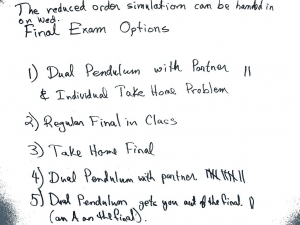 The reduced order simulation can be handed in
on Wed.
Final Exam Options
1) Dual Pendulum with Partner ||
& Individual Take Home Problem
2) Regular Final in Class
3) Take Home Final
4) Dual Pendulum with partner
5) Dual Pendulum gets you out of the final.
(an A on the final).